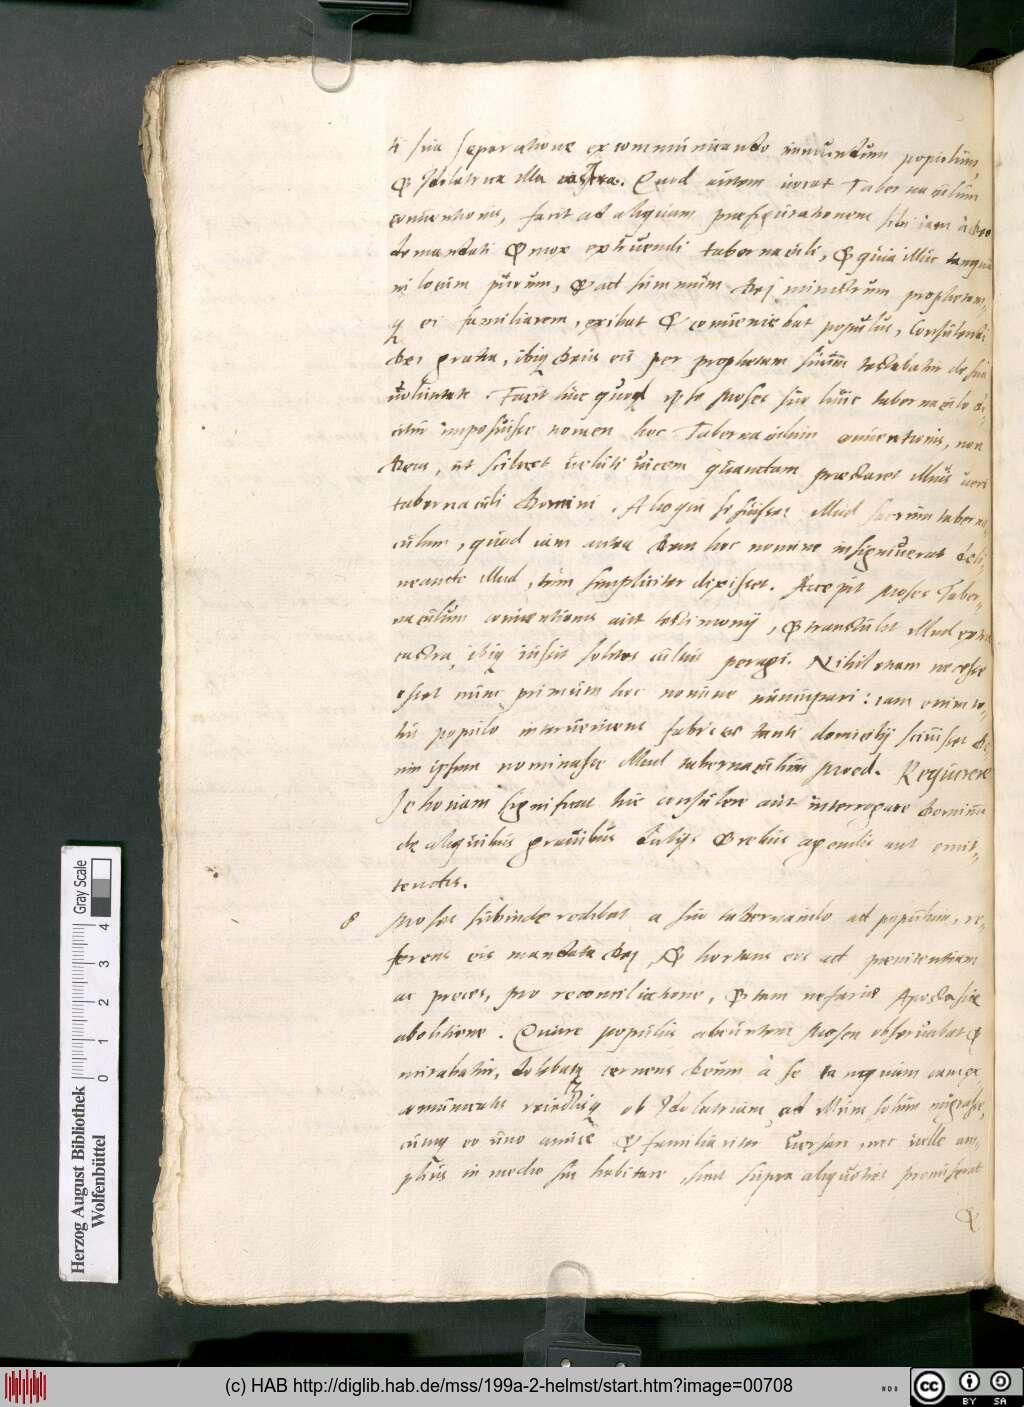 ti sua separatione excommunicando immundum populum,
& Idolatrica illa castra. Quod autem uocat Tabernaculum
conuentionis, facit ad aliquam praefigurationem sibi iam à Deo
demandati & mox extruendi tabernaculi, & quia illuc tanquã
in locum purum, & ad summum Dej ministrum prophetam,
ei familiarem, exibat & conueniebat populus, consulendi
Dei gratia, ibiq Deus eis per prophetam suum testabatur de sua
uoluntate. Facit huc quoq ipse Moses suo huic tabernaculo di-
citur imposuisse nomen hoc Tabernaculum conuentionis, non
Deus, ut scilicet ueluti uicem quandam praestaret illius ueri
tabernaculi Domini. Alioqui si fuisset illud sacrum taberna
culum, quod iam antea Deus hoc nomine insigniuerat deli,
neando illud, tum simpliciter dixisset. Accepit Moses Taber-
naculum conuentionis aut testimonij, & transtulit illud extra
castra, ibiq iussit solitos cultus peragi. Nihil enim necesse
esset nunc primum hoc nomine nuncupari: iam enim to-
tus populo
nominasse illud tabernaculum Moed. Requirere
Jehouam significat hic consulere aut interrogare Dominũ
de aliquibus grauibus dubijs & rebus agendis aut omit-
tendis.
8 Moses subinde redibat a suo tabernaculo ad populum, re-
ferens eis mandata Dej, & hortans eos ad poenitentiam
ac preces, pro reconciliatione, & tam nefariae Apostasiae
abolitione. Quare populus abeuntem Mosen obseruabat &
mirabatur, dolebatq cernens Deum à se tanquam
ob Idolatriam, ad illum solum migrasse,
cumq eo uno amice & familiariter uersari, nec uelle am-
plius in medio sui habitare, sicut supra aliquoties promiserat
&
Herzog August Bibliothek
Wolfenbüttel
Gray Scale
0 1 2 3 4
(c) HAB http://diglib.hab.de/mss/199a-2-helmst/start.htm?image=00708
cc BY SA